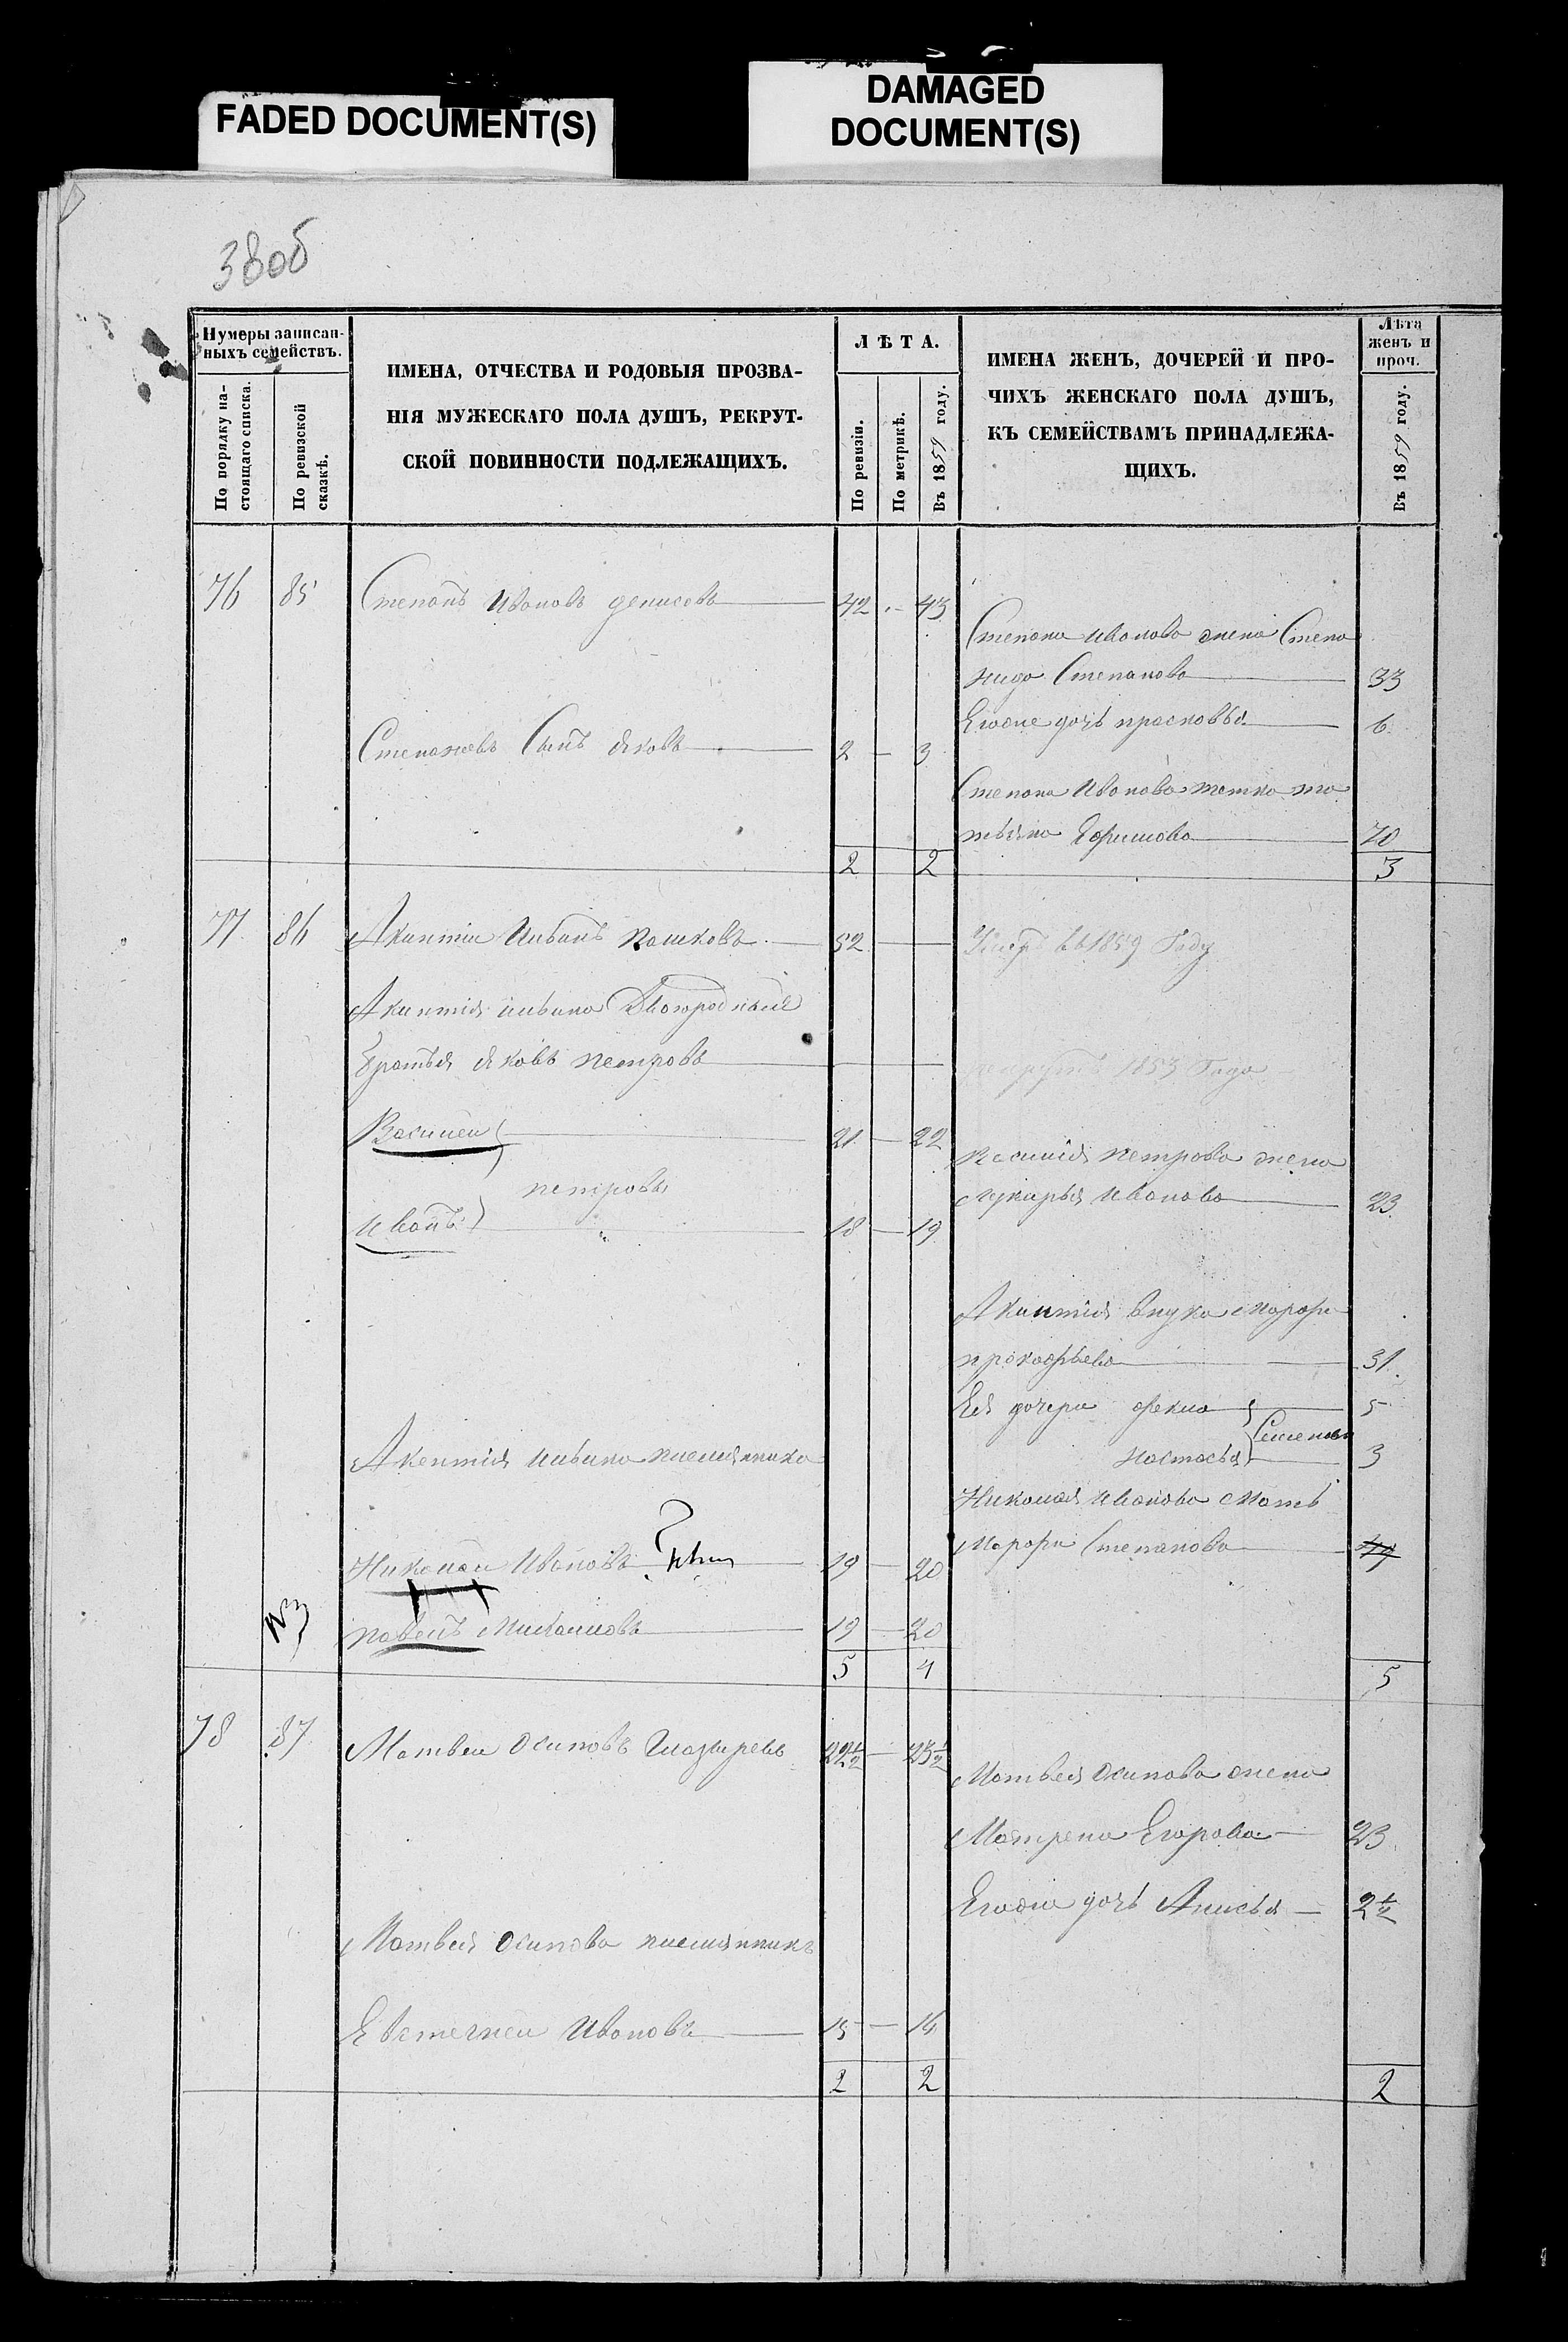 FADED DOCUMENT(S)
DAMAGED
DOCUMENT(S)
38об
Нумеры записан-
ныхъ семействъ.
По порядку на-
стоящаго списка.
По ревизской
сказкѣ.
ИМЕНА, ОТЧЕСТВА И РОДОВЫЯ ПРОЗВА-
НІЯ МУЖЕСКАГО ПОЛА ДУШЪ, РЕКРУТ-
СКОЙ ПОВИННОСТИ ПОДЛЕЖАЩИХЪ.
ЛѢТА.
По ревизіи.
По метрикѣ.
Въ 1859 году.
ИМЕНА ЖЕНЪ, ДОЧЕРЕЙ И ПРО-
ЧИХЪ ЖЕНСКАГО ПОЛА ДУШЪ,
КЪ СЕМЕЙСТВАМЪ ПРИНАДЛЕЖА-
ЩИХЪ.
Лѣта
женъ и
проч.
Въ 1859 году.
76 85 Степанъ Ивановъ денисовъ 42 - 43
Степана Иванова жена Степа
нида Степанова 33
Егоже дочь прасковья 6
Степановъ Сынъ яковъ 2 - 3
Степана Иванова тетка та
тьяна Ефимова 70
2 2 3
77 86 Акинтiи Пашковъ 52 -
1859 Году
Акинтiя Двоюродныя
братья яковъ петровъ
рекрутъ 1853 Года
Василеи 21 - 22
петровы
Василiя Петрова жена
Иванова 23
Иванъ 18 - 19
Акинтiя внука марфа
прокофьева 31
Ея дочери фекла 5
Семенов
настасья 3
племянника
Николая Иванова мать
Марфа Степанова
Николаи Ивановъ 19 - 20
№3 павелъ Михаиловъ 19 - 20
5 4 5
78 87 Матвеи Осиповъ 22½ - 23½
Матвея Осипова жена
Матрена Егорова 23
Егоже дочь Анисья 2½
Матвея Осипова племянникъ
Евстегнеи Ивановъ 15 - 16
2 2 2